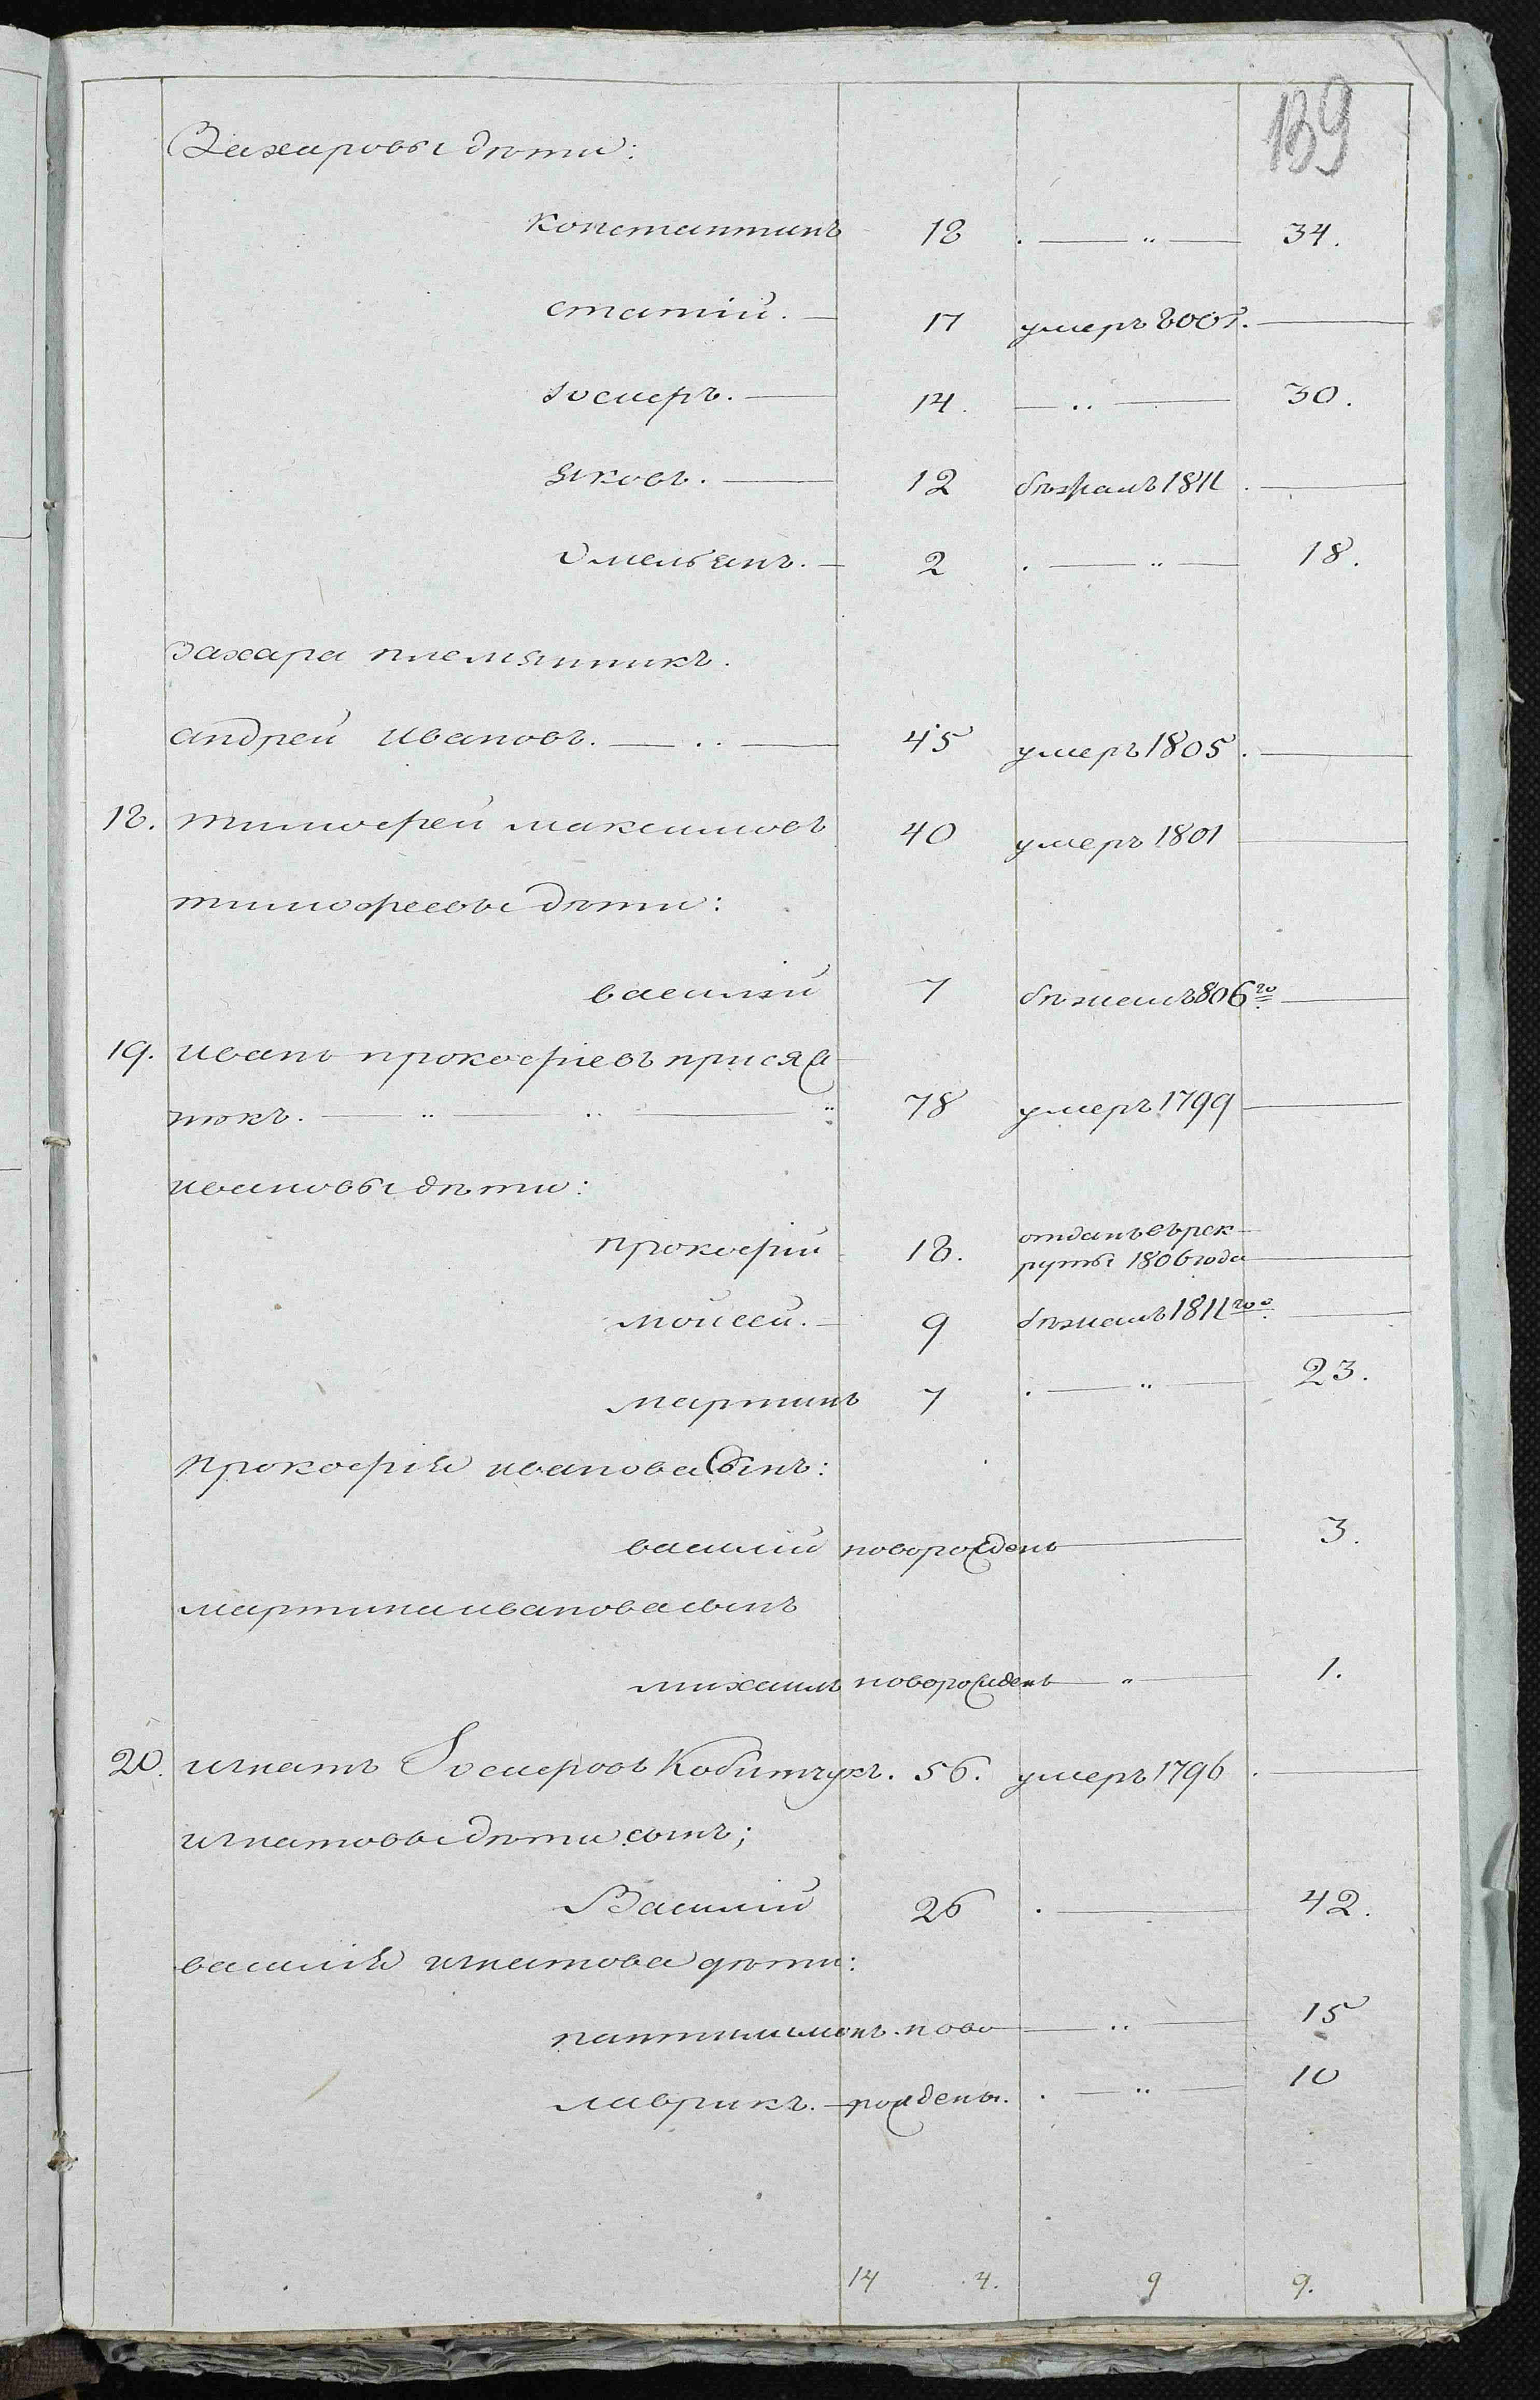 139
Захаровы дѣти:
Константинъ 18 . — „ — 34.
Статiй. — 17 умеръ 800г. —
Iосифъ. — 14. — „ — 30.
Яковъ. — 12 бѣжалъ 1811 . —
Омельянъ. — 2 . — „ — 18.
Захара племянникъ.
андрей ивановъ. — „ — 45 умеръ 1805 . —
18. тимофей максимовъ 40 умеръ 1801 —
тимофеевы дѣти:
василiй 7 бѣжалъ 806го —
19. иванъ прокофiевъ прися
нюкъ. — „ — „ — „ 78 умеръ 1799 —
ивановы дѣти:
прокофiй 18. отданъ въ рек-
руты 1806 года —
мойсей. — 9 бѣжалъ 1811го —
мартинъ 7 . — „ — 23.
прокофiя иванова сынъ:
василiй новорожденъ — 3.
мартина иванова сынъ
михаилъ новорожденъ — „ — 1.
20. игнатъ Iосифовъ Кобитчукъ. 56. умеръ 1796 . —
игнатовы дѣти сынъ;
Василiй 26 . — 42.
василiя игнатова дѣти:
пантилимонъ. ново — „ — 15
лаврикъ. — рождены. . — „ — 10
14 4. 9 9.